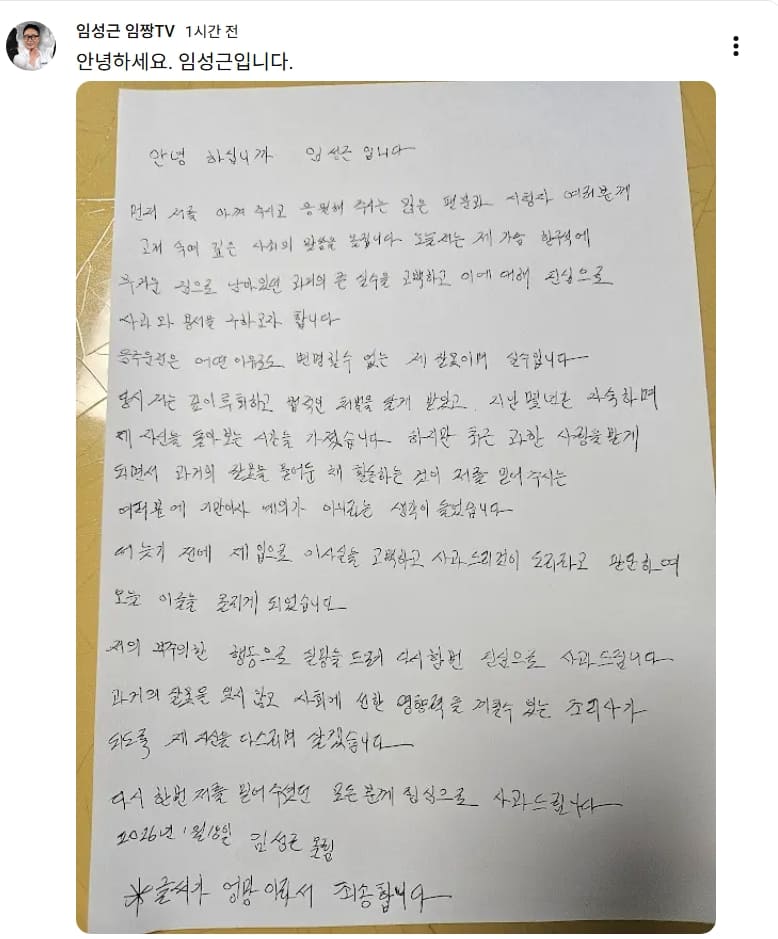 임성근 임짱TV 1시간 전
안녕하세요. 임성근입니다.
안녕 하십니까 임성근 입니다
먼저 저를 아껴 주시고 응원해 주시는 많은 팬분과 시청자 여러분께
고개 숙여 깊은 사죄의 말씀을 올립니다 오늘 저는 제 가슴 한구석에
무거운 짐으로 남아있던 과거의 큰 실수를 고백하고 이에 대해 진심으로
사과 와 용서를 구하고자 합니다
음주운전은 어떤 이유로도 변명할수 없는 제 잘못이며 실수입니다
당시 저는 깊이 후회하고 법적인 처벌을 달게 받았고, 지난 몇년간 자숙하며
제 자신을 돌아보는 시간을 가졌습니다 하지만 최근 과한 사랑을 받게
되면서 과거의 잘못을 묻어둔 채 활동하는 것이 저를 믿어 주시는
여러분에 기만이자 예의가 아니라는 생각이 들었습니다
더 늦기 전에 제 입으로 이사실을 고백하고 사과 드리것이 도리라고 판단하여
오늘 이글을 올리게 되었습니다
저의 부주의한 행동으로 실망을 드려 다시한번 진심으로 사과드립니다
과거의 잘못을 잊지 않고 사회에 선한 영향력을 끼칠수 있는 조리사가
되도록 제 자신을 다스리며 살겠습니다
다시 한번 저를 믿어주셨던 모든 분께 진심으로 사과드립니다
2026년 1월 18일 임성근 올림
* 글씨가 엉망 이라서 죄송합니다